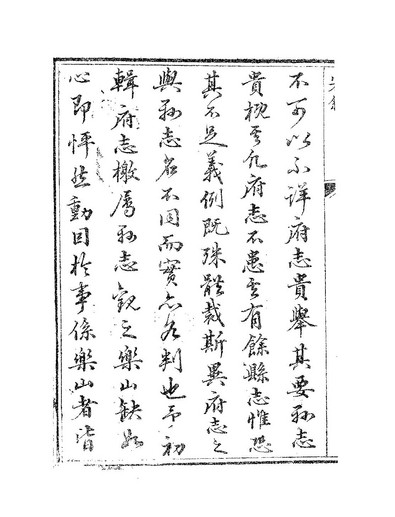 不可以不詳府志貴舉其要縣志
貴枕其凡府志不患其有餘縣志惟恐
其不足義例既殊體裁斯異府志之
與縣志名不同而實亦各判也予初
輯府志檄屬縣志觀之樂山缺如
心即怦然動因於事係樂山者皆